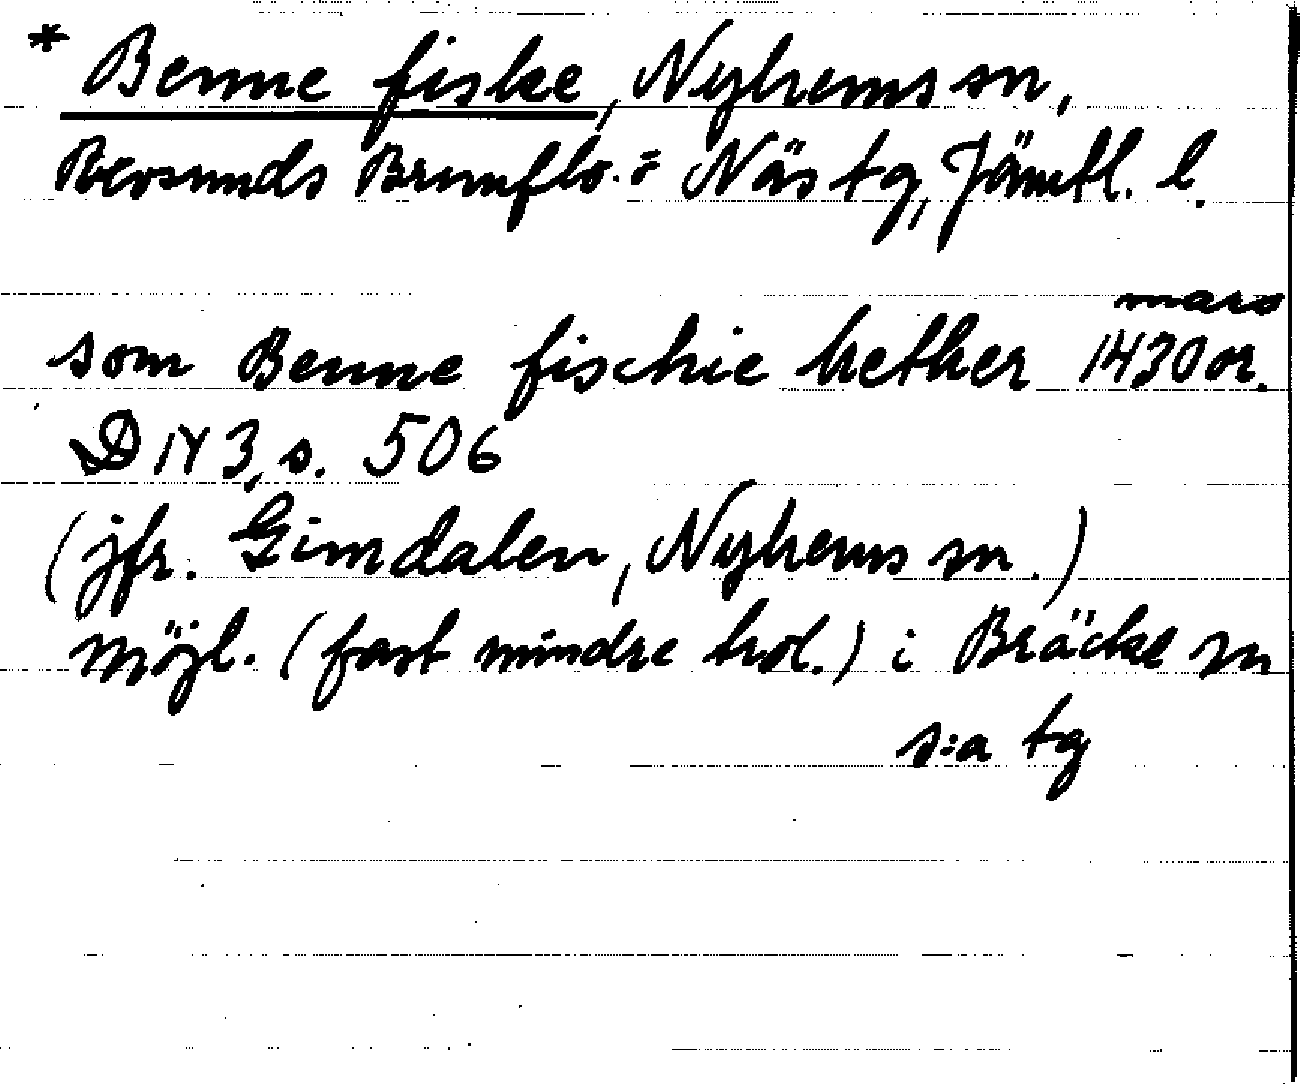 * Benne fiske, Nyhems sn,
Revsunds Brunflo.= Näs tg, Jämtl. l.
mars
som Benne fischie hether 1430 or.
DN 3, s. 506
(jfr. Gimdalen, Nyhems sn.)
möjl. (fast mindre trol.) i Bräcke sn
s:a tg